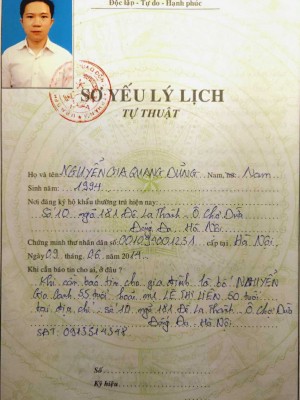 Độc lập - Tự do - Hạnh phúc
SƠ YẾU LÝ LỊCH
TỰ THUẬT
Họ và tên: NGUYỄN GIA QUANG DŨNG Nam, nữ: Nam
Sinh năm: 1994
Nơi đăng ký hộ khẩu thường trú hiện nay
Số 10 ngõ 181 Đê La Thành - Ô Chợ Dừa
Đống Đa - Hà Nội
Chứng minh thư nhân dân số: 001099001251 cấp tại: Hà Nội
Ngày 09 tháng 06 năm 2014
Khi cần báo tin cho ai, ở đâu ?
Khi cần báo tin cho gia đình là bố NGUYỄN
Gia 55 tuổi hoặc mẹ LÊ THỊ LIÊN 50 tuổi
tại địa chỉ: số 10 ngõ 181 Đê La Thành Ô Chợ Dừa
Đống Đa - Hà Nội
SĐT: 0913514548
Số:
Ký hiệu: